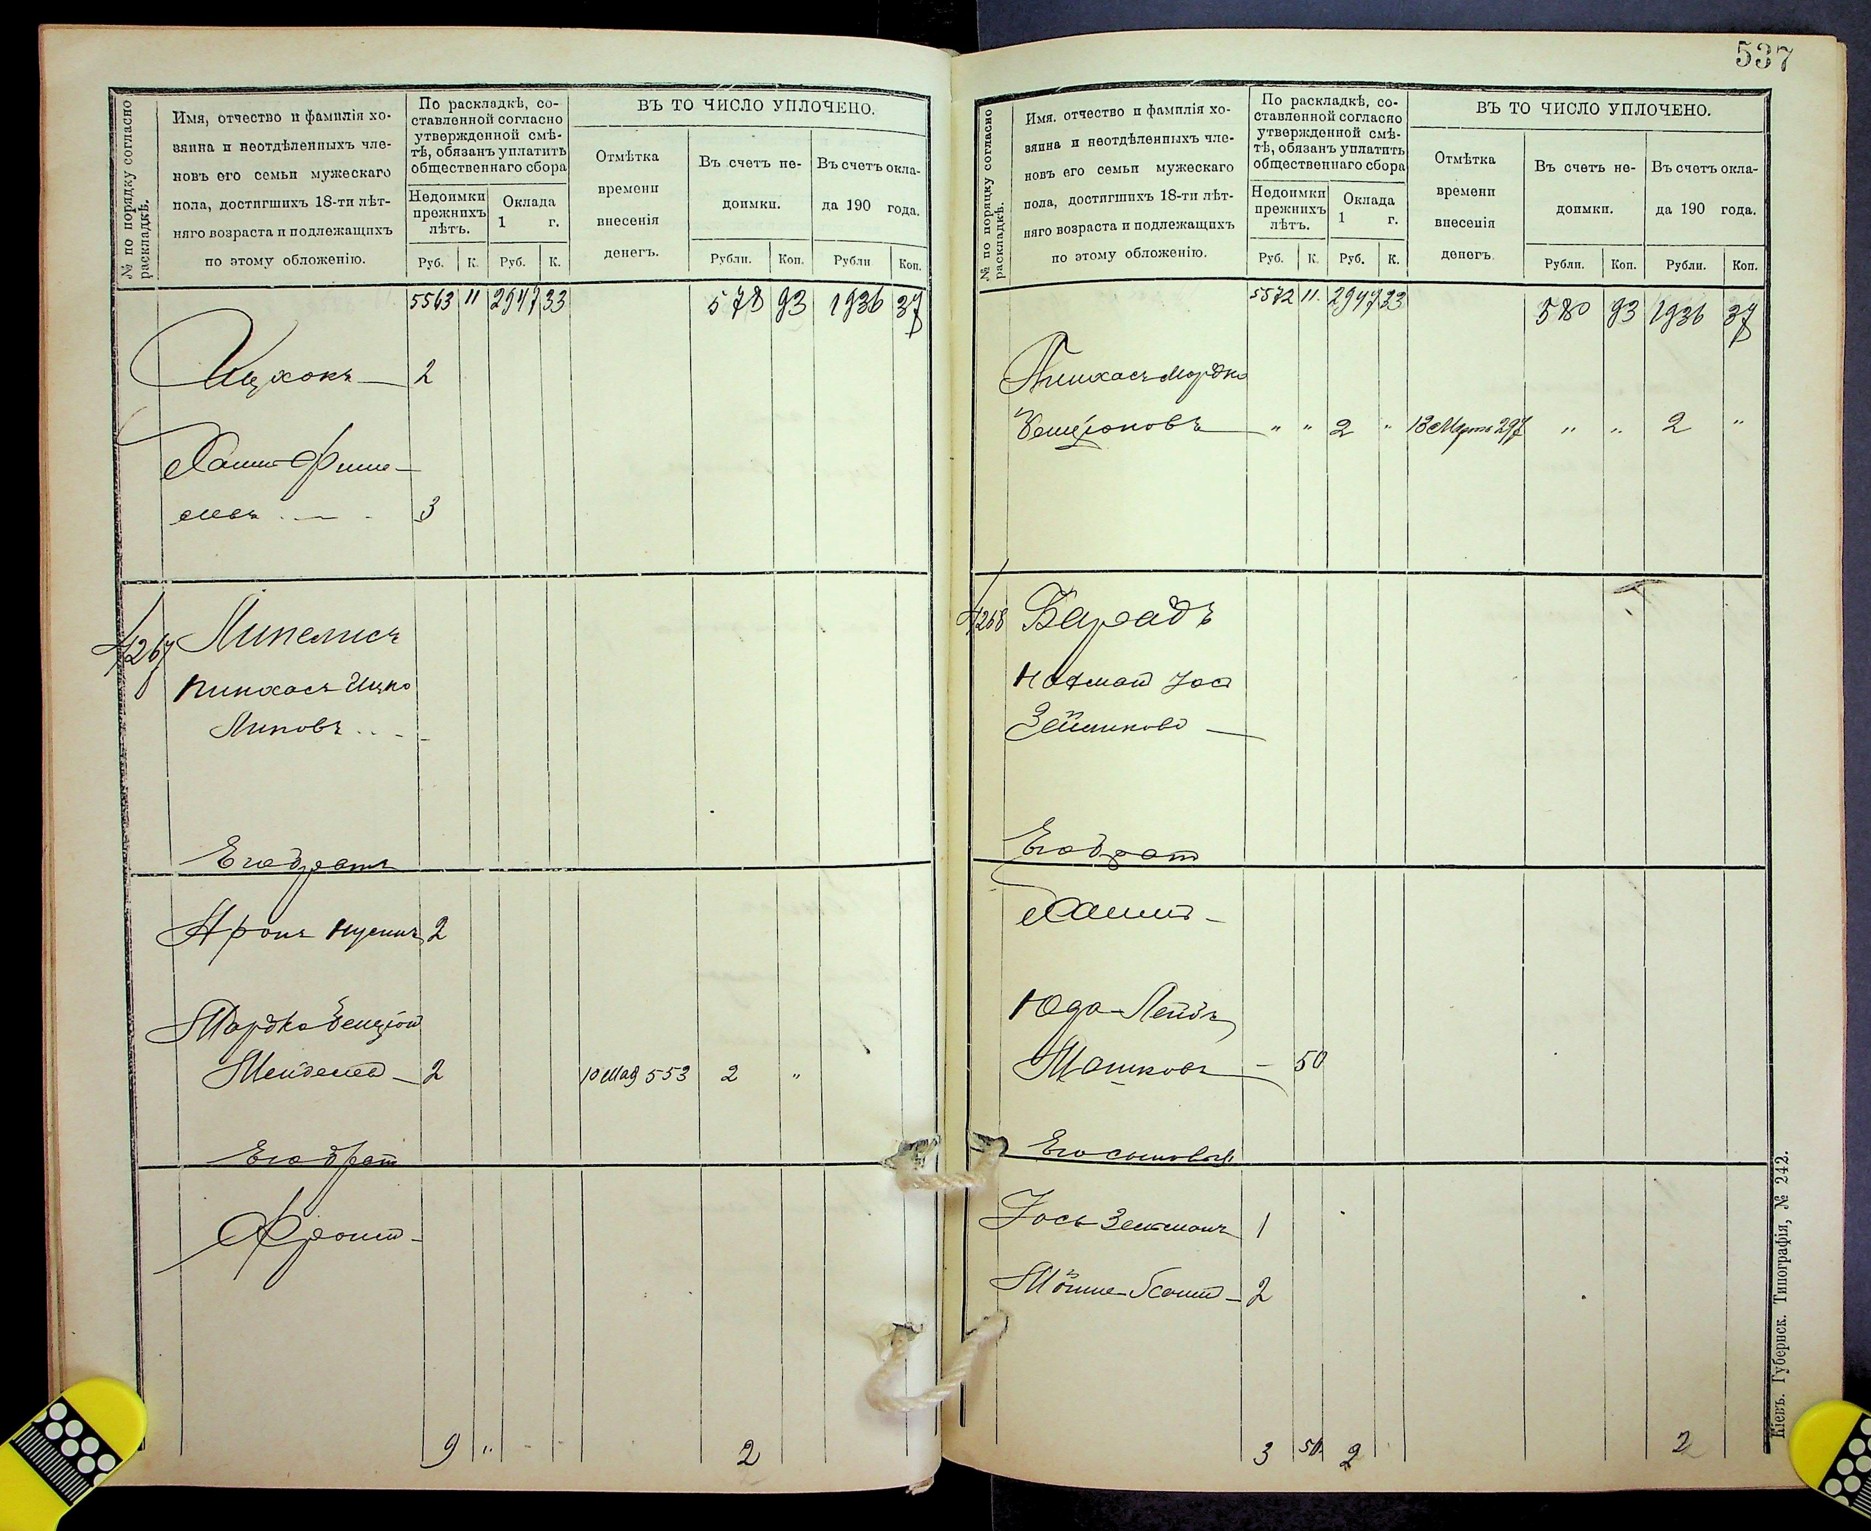 № по порядку согласно раскладкѣ.
Имя, отчество и фамилія хо-
зяина и неотдѣленныхъ чле-
новъ его семьи мужескаго
пола, достигшихъ 18-ти лѣт-
няго возраста и подлежащихъ
по этому обложенію.
По раскладкѣ, со-
ставленной согласно
утвержденной смѣ-
тѣ, обязанъ уплатить
общественнаго сбора
Недоимки
прежнихъ
лѣтъ.
Оклада
1 г.
Руб. К. Руб. К.
ВЪ ТО ЧИСЛО УПЛОЧЕНО.
Отмѣтка
времени
внесенія
денегъ.
Въ счетъ не-
доимки.
Въ счетъ окла-
да 190 года.
Рубли. Коп. Рубли Коп.
5563 11 2947 33 578 93 1936 37
Ицхокъ 2
Хаимъ Фише-
левъ 3
1267 Липелисъ
Пинхасъ Ицко
Липовъ
Его братъ
Аронъ Нусинъ 2
Мордко Бенціон
Мейделев 2 10 Мая 553 2 "
Его брат
Фроим
9 " 2
537
№ по порядку согласно раскладкѣ.
Имя. отчество и фамилія хо-
зяина и неотдѣленныхъ чле-
новъ его семьи мужескаго
пола, достигшихъ 18-ти лѣт-
няго возраста и подлежащихъ
по этому обложенію.
По раскладкѣ, со-
ставленной согласно
утвержденной смѣ-
тѣ, обязанъ уплатить
общественнаго сбора
Недоимки
прежнихъ
лѣтъ.
Оклада
1 г.
Руб. К. Руб. К.
ВЪ ТО ЧИСЛО УПЛОЧЕНО.
Отмѣтка
времени
внесенія
денегъ.
Въ счетъ не-
доимки.
Въ счетъ окла-
да 190 года.
Рубли. Коп. Рубли. Коп.
5572 11. 2947 33 580 93 1936 37
Пинхасъ Мордко
Бенціоновъ " " 2 " 13 Марта 297 " " 2 "
1268 Барадъ
Нахман Іос
Зейликово
Его брат
Хаим
Юда-Лейбъ
Машковъ - 50
Его сыновья:
Іось Зельманъ 1
Мойше-Хаим 2
3 50 2 2
Кіевъ. Губернск. Типографія, № 242.